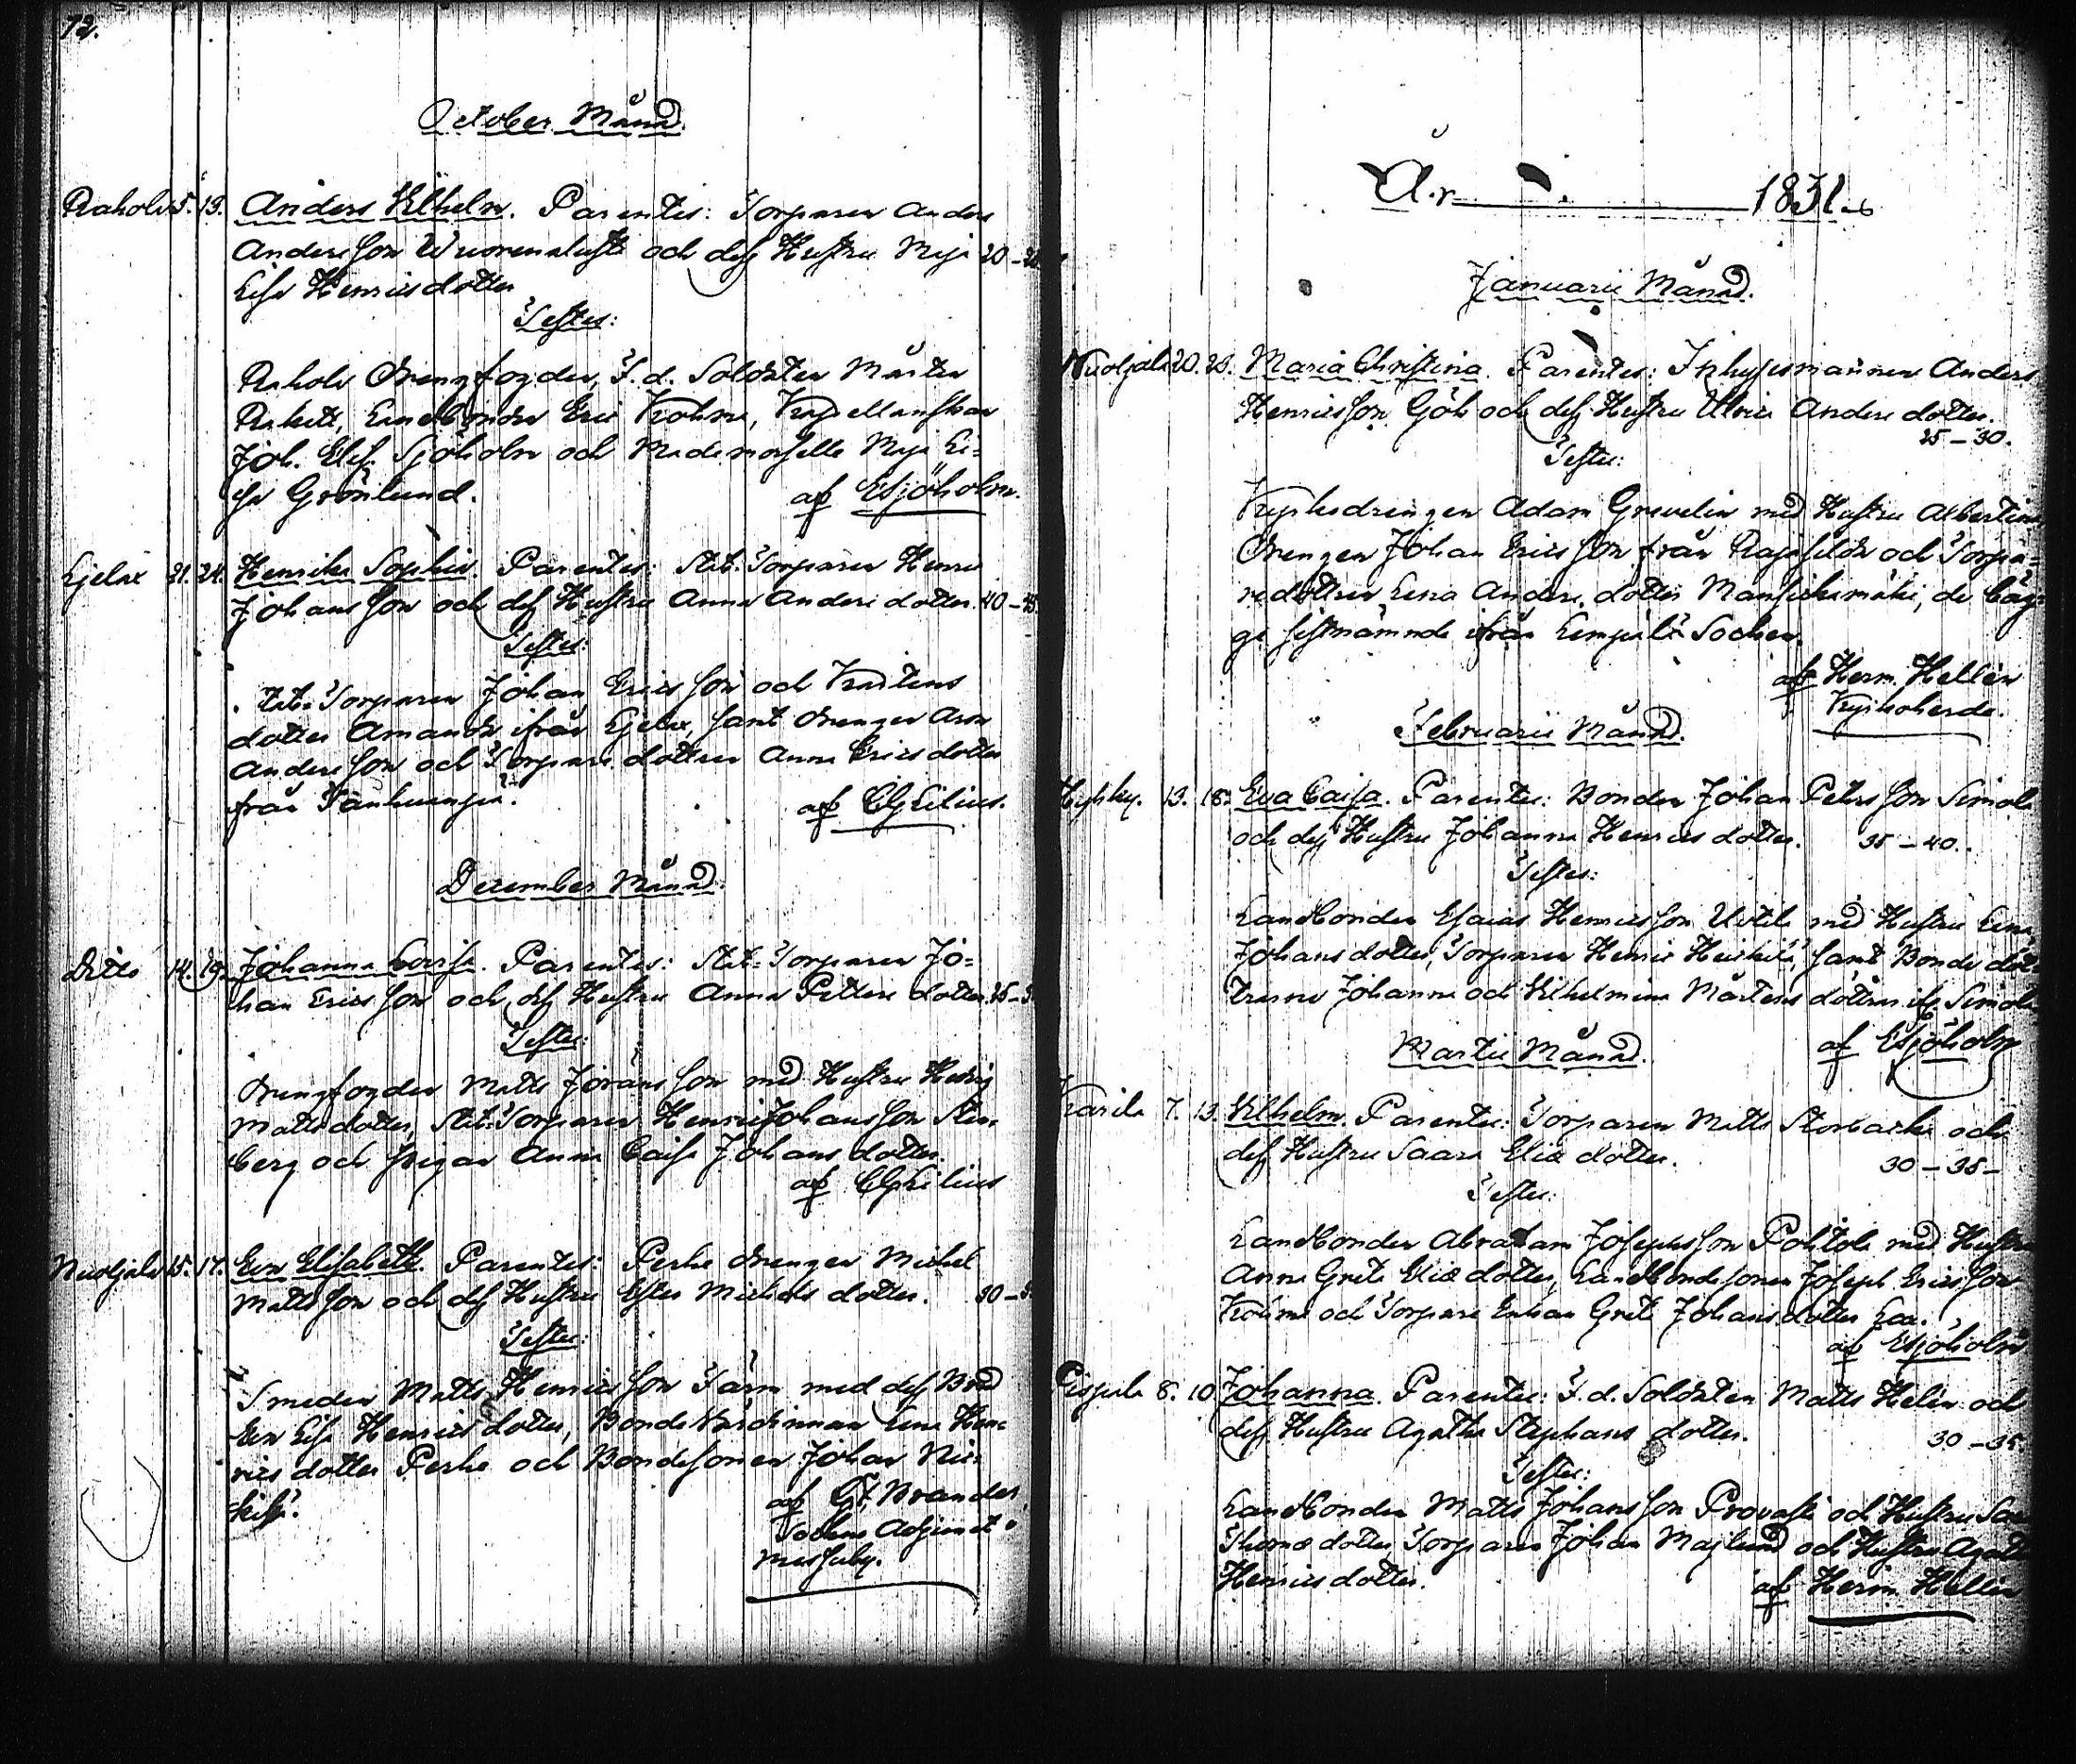 72.
October Månad.
Raholv 5. 13. Anders Vilhelm. Parentes: Torparen Anders
Andersson och dess Hustru Maja 20–
Lisa Henricsdotter
Testes:
Raholv Drengfogden, F.d. Soldaten Mårten
Landbonden Eric Krohn, Kapellanskan
Joh. Elis. Sjöholm och Mademoiselle Maja Li=
sa Grönlund. af ESjöholm.
21. 24. Henrika Sophia. Parentes: Stat-Torparen Henric
Johansson och dess Hustru Anna Andersdotter. 40–45.
Testes:
Stat-Torparen Johan Ericsson och
dotter Amanda ifrån samt Drengen Aron
Andersson och Torpare dottren Anna Ericsdotter
från af
December Månad.
Ditto 14. 19. Johanna Lovisa. Parentes: Stat-Torparen Jo=
han Ericsson och dess Hustru Anna Petters dotter. 25–
Testes:
Drengfogden Matts Jöransson med Hustru Hedvig
Mattsdotter, Stat-Torparen Henric Johansson Sten=
berg och pigan Anna Caisa Johansdotter.
af
Nuoljala 15. 17. Eva Elisabeth. Parentes: Perhe drengen Michel
Mattsson och dess Hustru Ester Michels dotter. 30–
Testes:
Smeden Matts Henricsson Färm med dess
Eva Lisa Henricsdotter, Bonde Värdinnan Lena Hen=
rics dotter Perhe och Bondesonen Johan
af Brander,
Sockne Adjunct i
Messuby.
År 1831.
Januarii Månad.
Nuoljala 20. 23. Maria Christina. Parentes: Inhysesmannen Anders
Henricsson Gök och dess Hustru Ulrica Anders dotter.
25–30.
Testes:
Kyrkodrengen Adam Grevelin med Hustru Albertina,
Drengen Johan Ericsson från och Torpa=
redottren Lena Anders dotter Mansickamäki, de båg=
ge sistnämnde ifrån Lempälä Socken.
af Herm. Hellén
Kyrkoherde.
Februarii Månad.
13. 18. Eva Caisa. Parentes: Bonden Johan Petersson Simola
och dess Hustru Johanna Henrics dotter. 35–40.
Testes:
Landbonden Esaias Henricsson Uotila med Hustru Lena
Johansdotter, Torparen Henric Heickilä, samt Bonde döt=
trarne Johanna och Vilhelmina Mårtens döttrar if. Simola
af ESjöholm
Martii Månad.
Karila 7. 13. Vilhelm. Parentes: Torparen Matts Storbacka och
dess Hustru Saara Eliæ dotter. 30–35–
Testes:
Landbonden Abraham Josephsson Pohtola med Hustru
Anna Greta Eliæ dotter, Landbondesonen Joseph Ericsson
Krohn och Torpare Enkan Greta Johans dotter
af ESjöholm
8. 10. Johanna. Parentes: F.d. Soldaten Matts Helin och
dess Hustru Agatha Stephans dotter. 30–35
Testes:
Landbonden Matts Johansson Provasti och Hustru
Thomæ dotter, Torparen Johan Majlund och Hustru Agatha
Henricsdotter. af Herm. Hellén